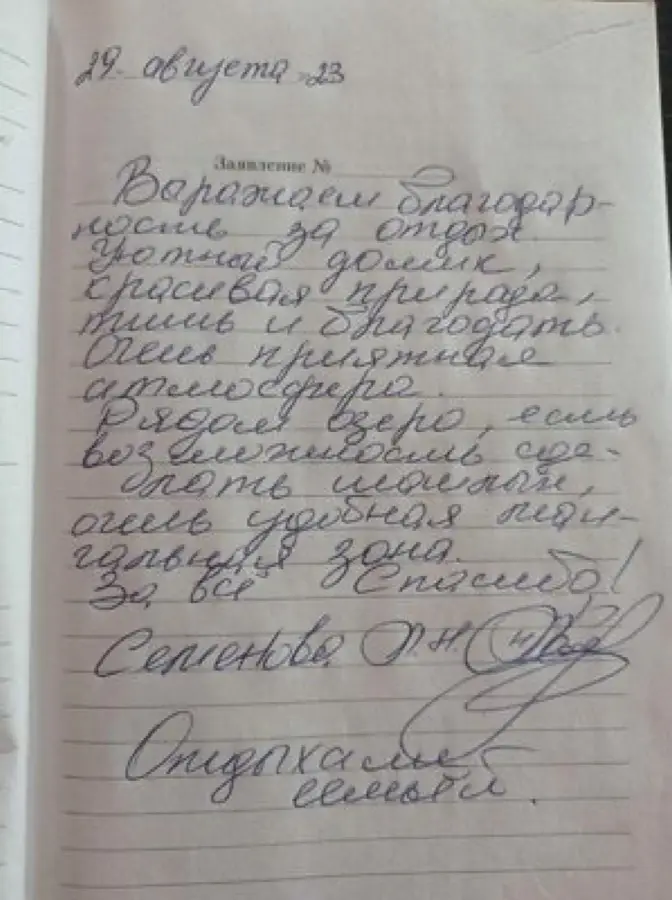 29. августа 23
Заявление №
Варажаем благодар-
ность за отдых.
Уютный домик,
красивая прирада,
тишь и благодать.
Очень приятная
атмосфера.
Рядом озеро, есть
возможность сде-
лать шашлык,
очень удобная ман-
гальная зона.
За всё Спасибо!
Семенова Н.
Отдыхали
семьёй.